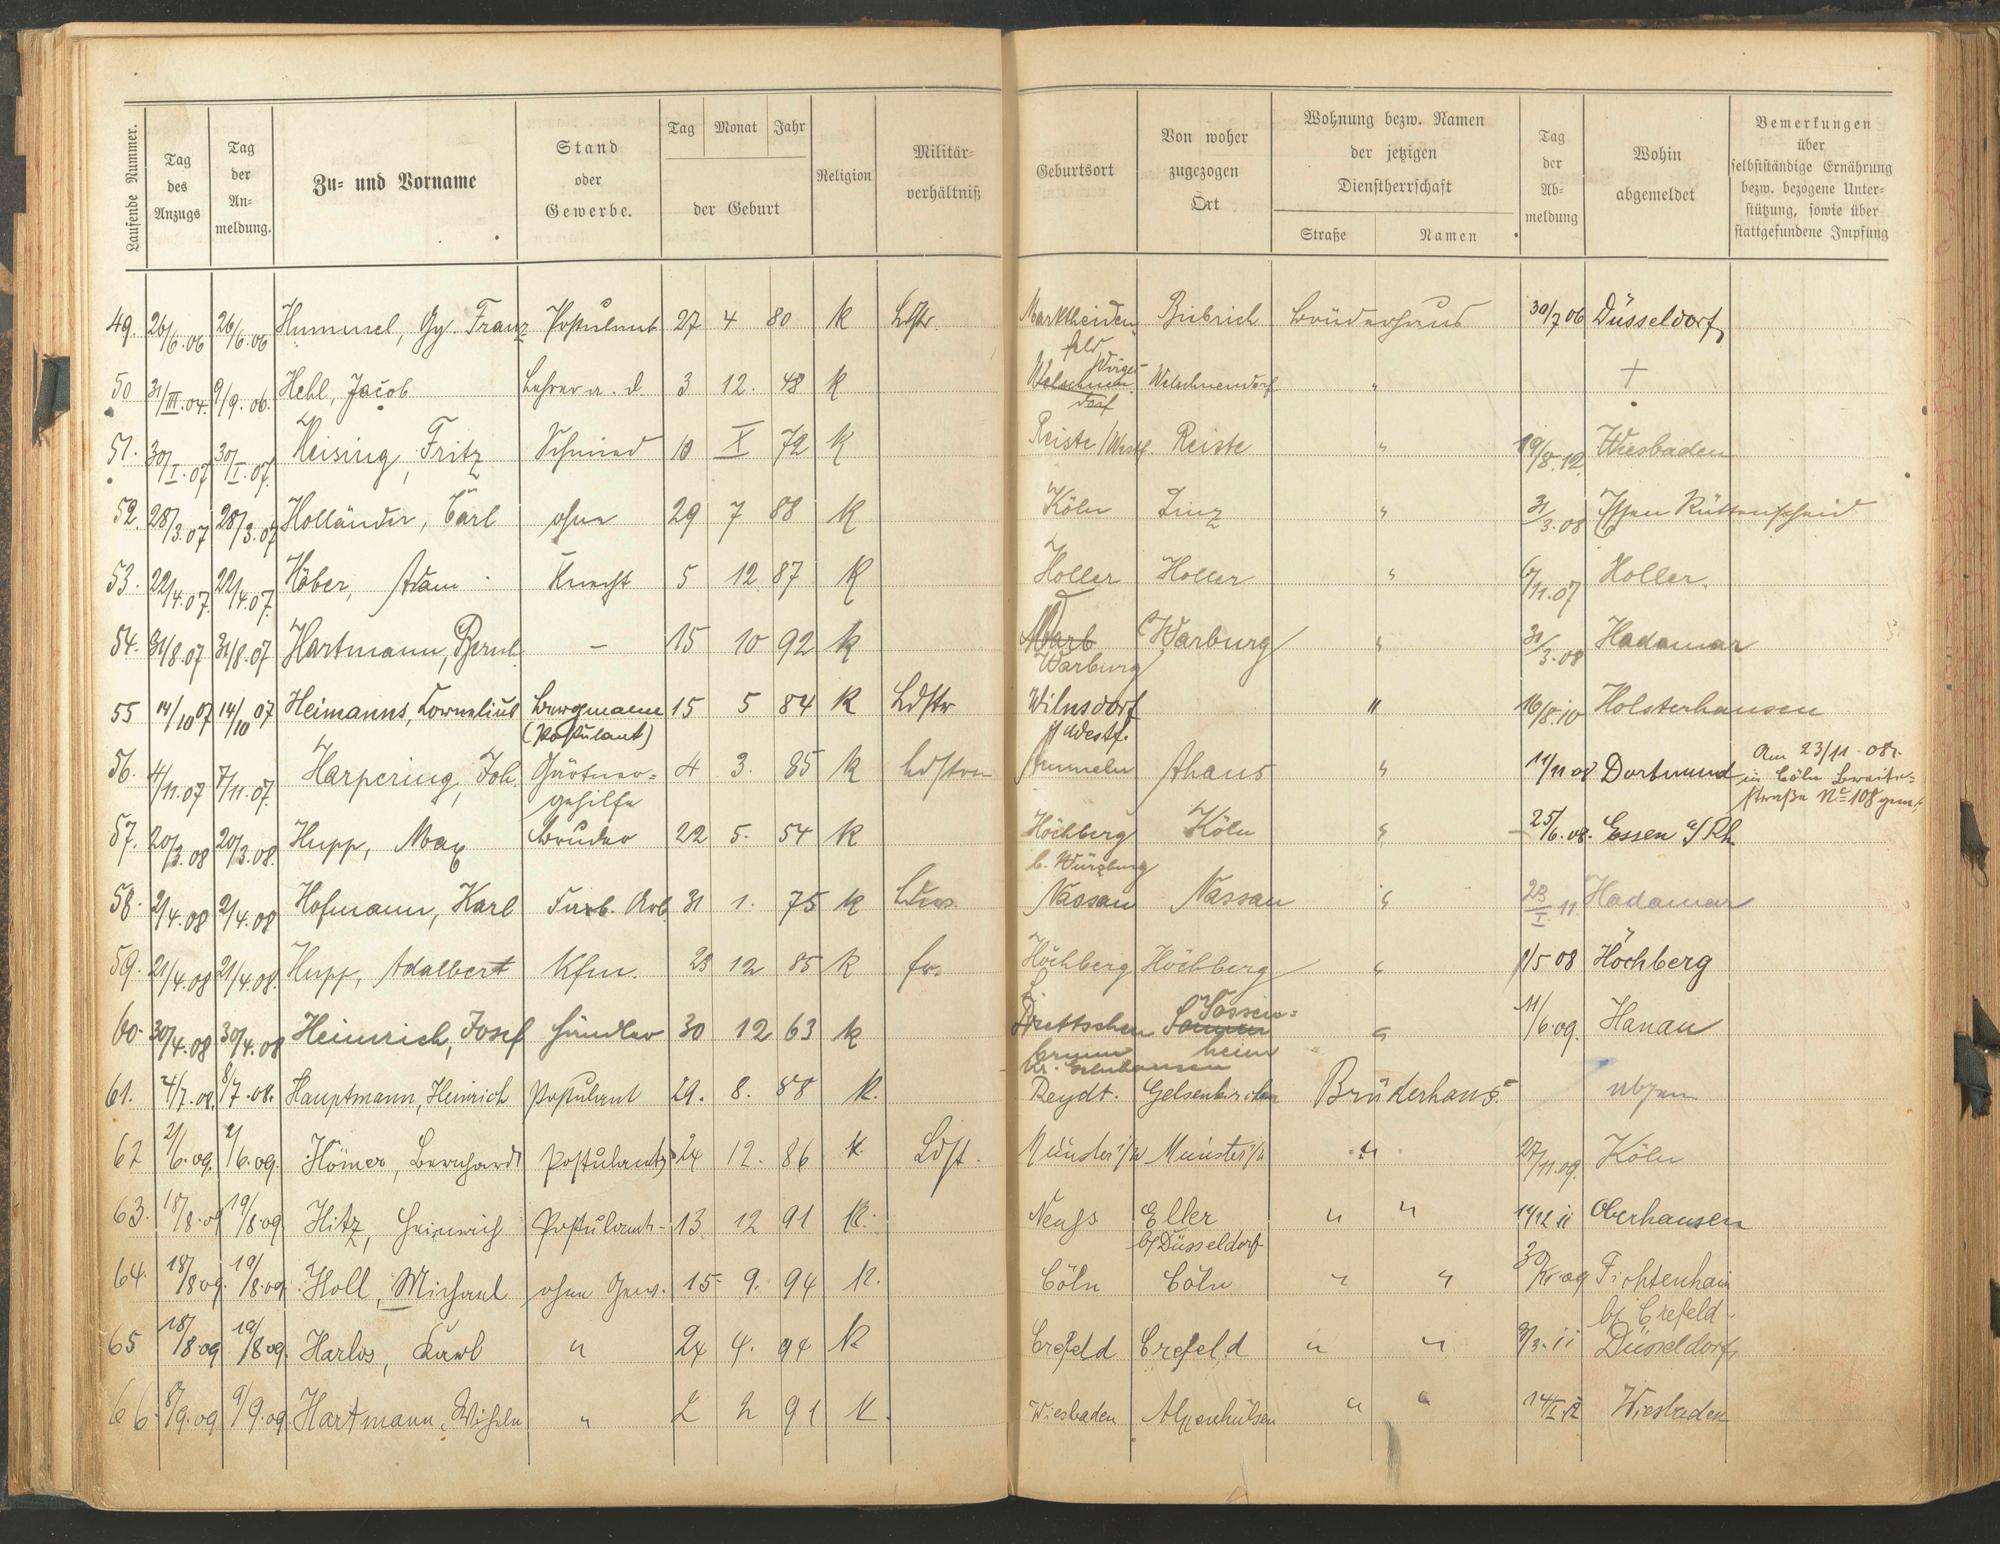 Laufende Nummer.
Tag des Anzugs
Tag der An-meldung.
Zu- und Vorname
Stand oder Gewerbe.
Tag Monat Jahr
der Geburt
Religion
Militär-verhältniß
Geburtsort
Von woher zugezogen Ort
Wohnung bezw. Namen der jetzigen Dienstherrschaft
Straße Namen
Tag der Ab-meldung
Wohin abgemeldet
Bemerkungen über selbstständige Ernährung bezw. bezogene Unter-stützung, sowie über stattgefundene Impfung
49. 26/6.06 26/6.06 Hummel, Gg. Franz Postulant 27 4 80 k Ldstr. Marktheiden Biebrich Brüderhaus 30/7 06 Düsseldorf
feld
50 31/III.04. 9/9.06. Hehl, Jacob Lehrer a. d 3 12. 48 k Welschneudorf " +
51. 30/I.07 30/I.07. Heising, Fritz Schmied 10 X 72 k Reiste/Westf. Reiste " 19/8.12. Wiesbaden
52. 28/3.07 28/3.07 Holländer, Carl ohne 29 7 88 k Köln Linz " 31/3.08 Essen Rüttenscheid
53. 22/4.07. 22/4.07. Höber, Adam Knecht 5 12 87 k Holler Holler " 6/11.07 Holler.
54. 31/8.07 31/8.07 Hartmann, Bernh. – 15 10 92 k Warb Warburg " 31/3.08 Hadamar
Warburg
55 14/10 07 14/10 07 Heimanns, Cornelius Bergmann 15 5 84 k Ldstr Wilnsdorf " 16/8.10 Holsterhausen
(Postulant) i/Westf.
56. 4/11.07 7/11.07. Harpering, Joh. Gärtner= 4 3. 85 k Ldstrm Ammeln Ahaus " 11/11 08 Dortmund
gehilfe
Am 23/11.08.
in Cöln Breite=
straße No 108 gem.
57. 20/3.08 20/3.08. Hupp, Max Bruder 22 5. 54 k Höchberg Köln " 25/6.08. Essen a/Rh.
b. Würzburg
58. 2/4.08 2/4.08 Hofmann, Karl Farb. Arb. 31 1. 75 k Nassau Nassau " 23/I.11. Hadamar
59. 21/4.08 21/4.08. Hupp, Adalbert Kfm. 23 12 85 k Höchberg Höchberg " 1/5 08 Höchberg
60. 30/4.08 30/4.08 Heinrich, Josef Händler 30 12 63 k Brettschen Sossen= " 11/6.09. Hanau
brunn heim
Kr. Gelnhausen
61. 4/7.08. 8/7.08. Hauptmann, Heinrich Postulant 29. 8. 88 k. Reydt. Gelsenkirchen Brüderhaus.
62 2/6.09. 2/6.09. Hömer, Bernhardt Postulant 24 12. 86 k. Ldst. Münster i/w Münster i/w " 27/11.09. Köln
63. 18/8.09 19/8.09 Hitz, Heinrich Postulant- 13 12 91 k. Neuß Eller " " 14/12 11 Oberhausen
b/Düsseldorf
64. 18/8 09. 19/8.09. Holl, Michael ohne Gew. 15 9. 94 k. Cöln Cöln " " Fichtenhain
b/ Crefeld.
65 18/8.09 19/8 09. Harlos, Karl " 24 4. 94 k. Crefeld Crefeld " " 9/3.11 Düsseldorf
66. 8/9.09 9/9.09. Hartmann, Wilhelm " 2 2 91 k. Wiesbaden " " 14/I.12 Wiesbaden